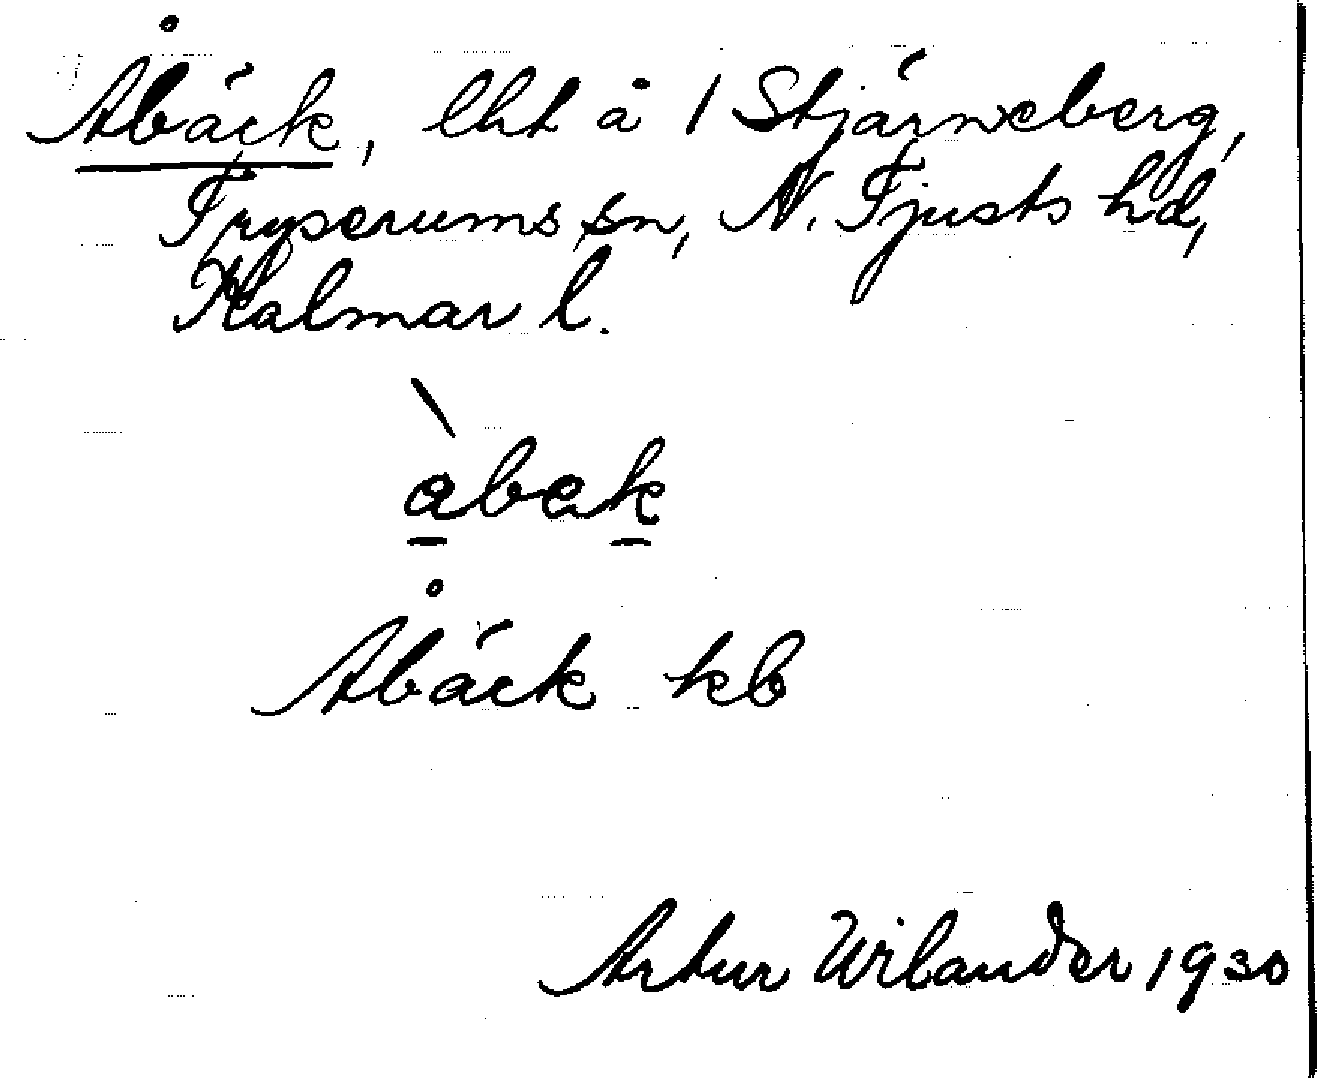 Åbäck, lht å 1 Stjärneberg,
Tryserums sn, N. Tjusts hd,
Kalmar l.
åbak
Åbäck kb
Artur Wilander 1930